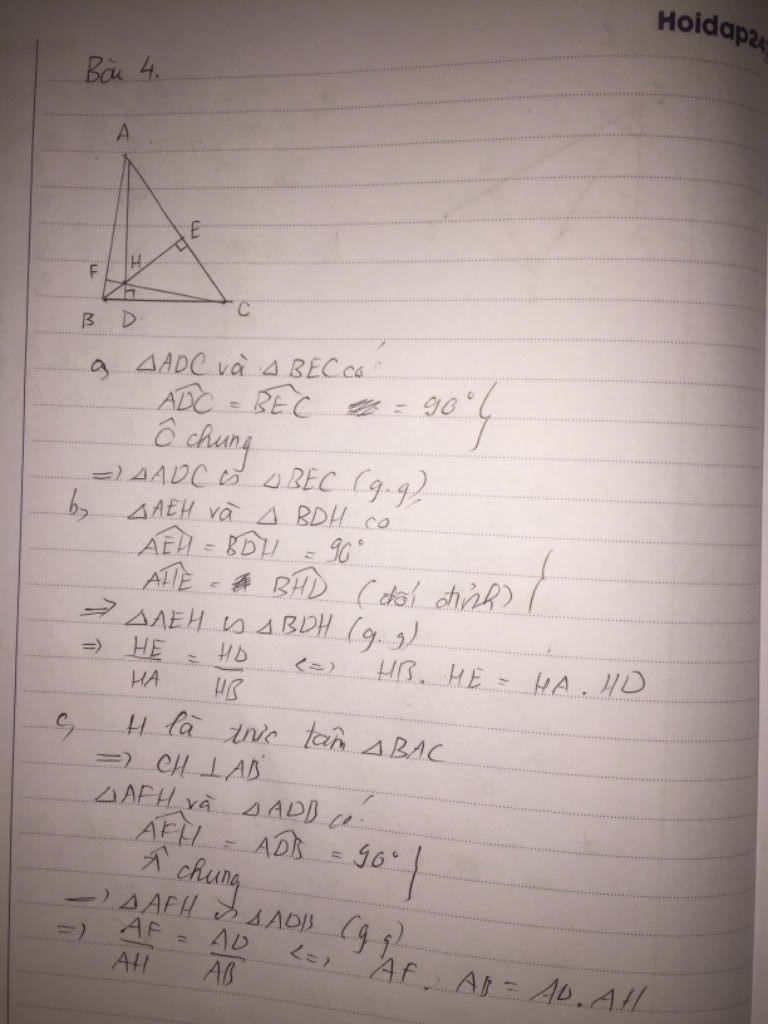 Hoidap247
Bài 4.
A
E
F
H
B
D
C
a, △ADC và △BEC có
ADC^ = BEC^ = 90°
Ĉ chung
=> △ADC ∽ △BEC (g.g)
b, △AEH và △ BDH có
AEH^ = BDH^ = 90°
AHE^ = BHD^ (đối đỉnh)
=> △AEH ∽ △BDH (g.g)
=> HE/HA = HD/HB <=> HB. HE = HA. HD
c, H là trực tâm △BAC
=> CH ⊥ AB
△AFH và △ADB có
AFH^ = ADB^ = 90°
Â chung
=> △AFH ∽ △ADB (g.g)
=> AF/AH = AD/AB <=> AF. AB = AD. AH